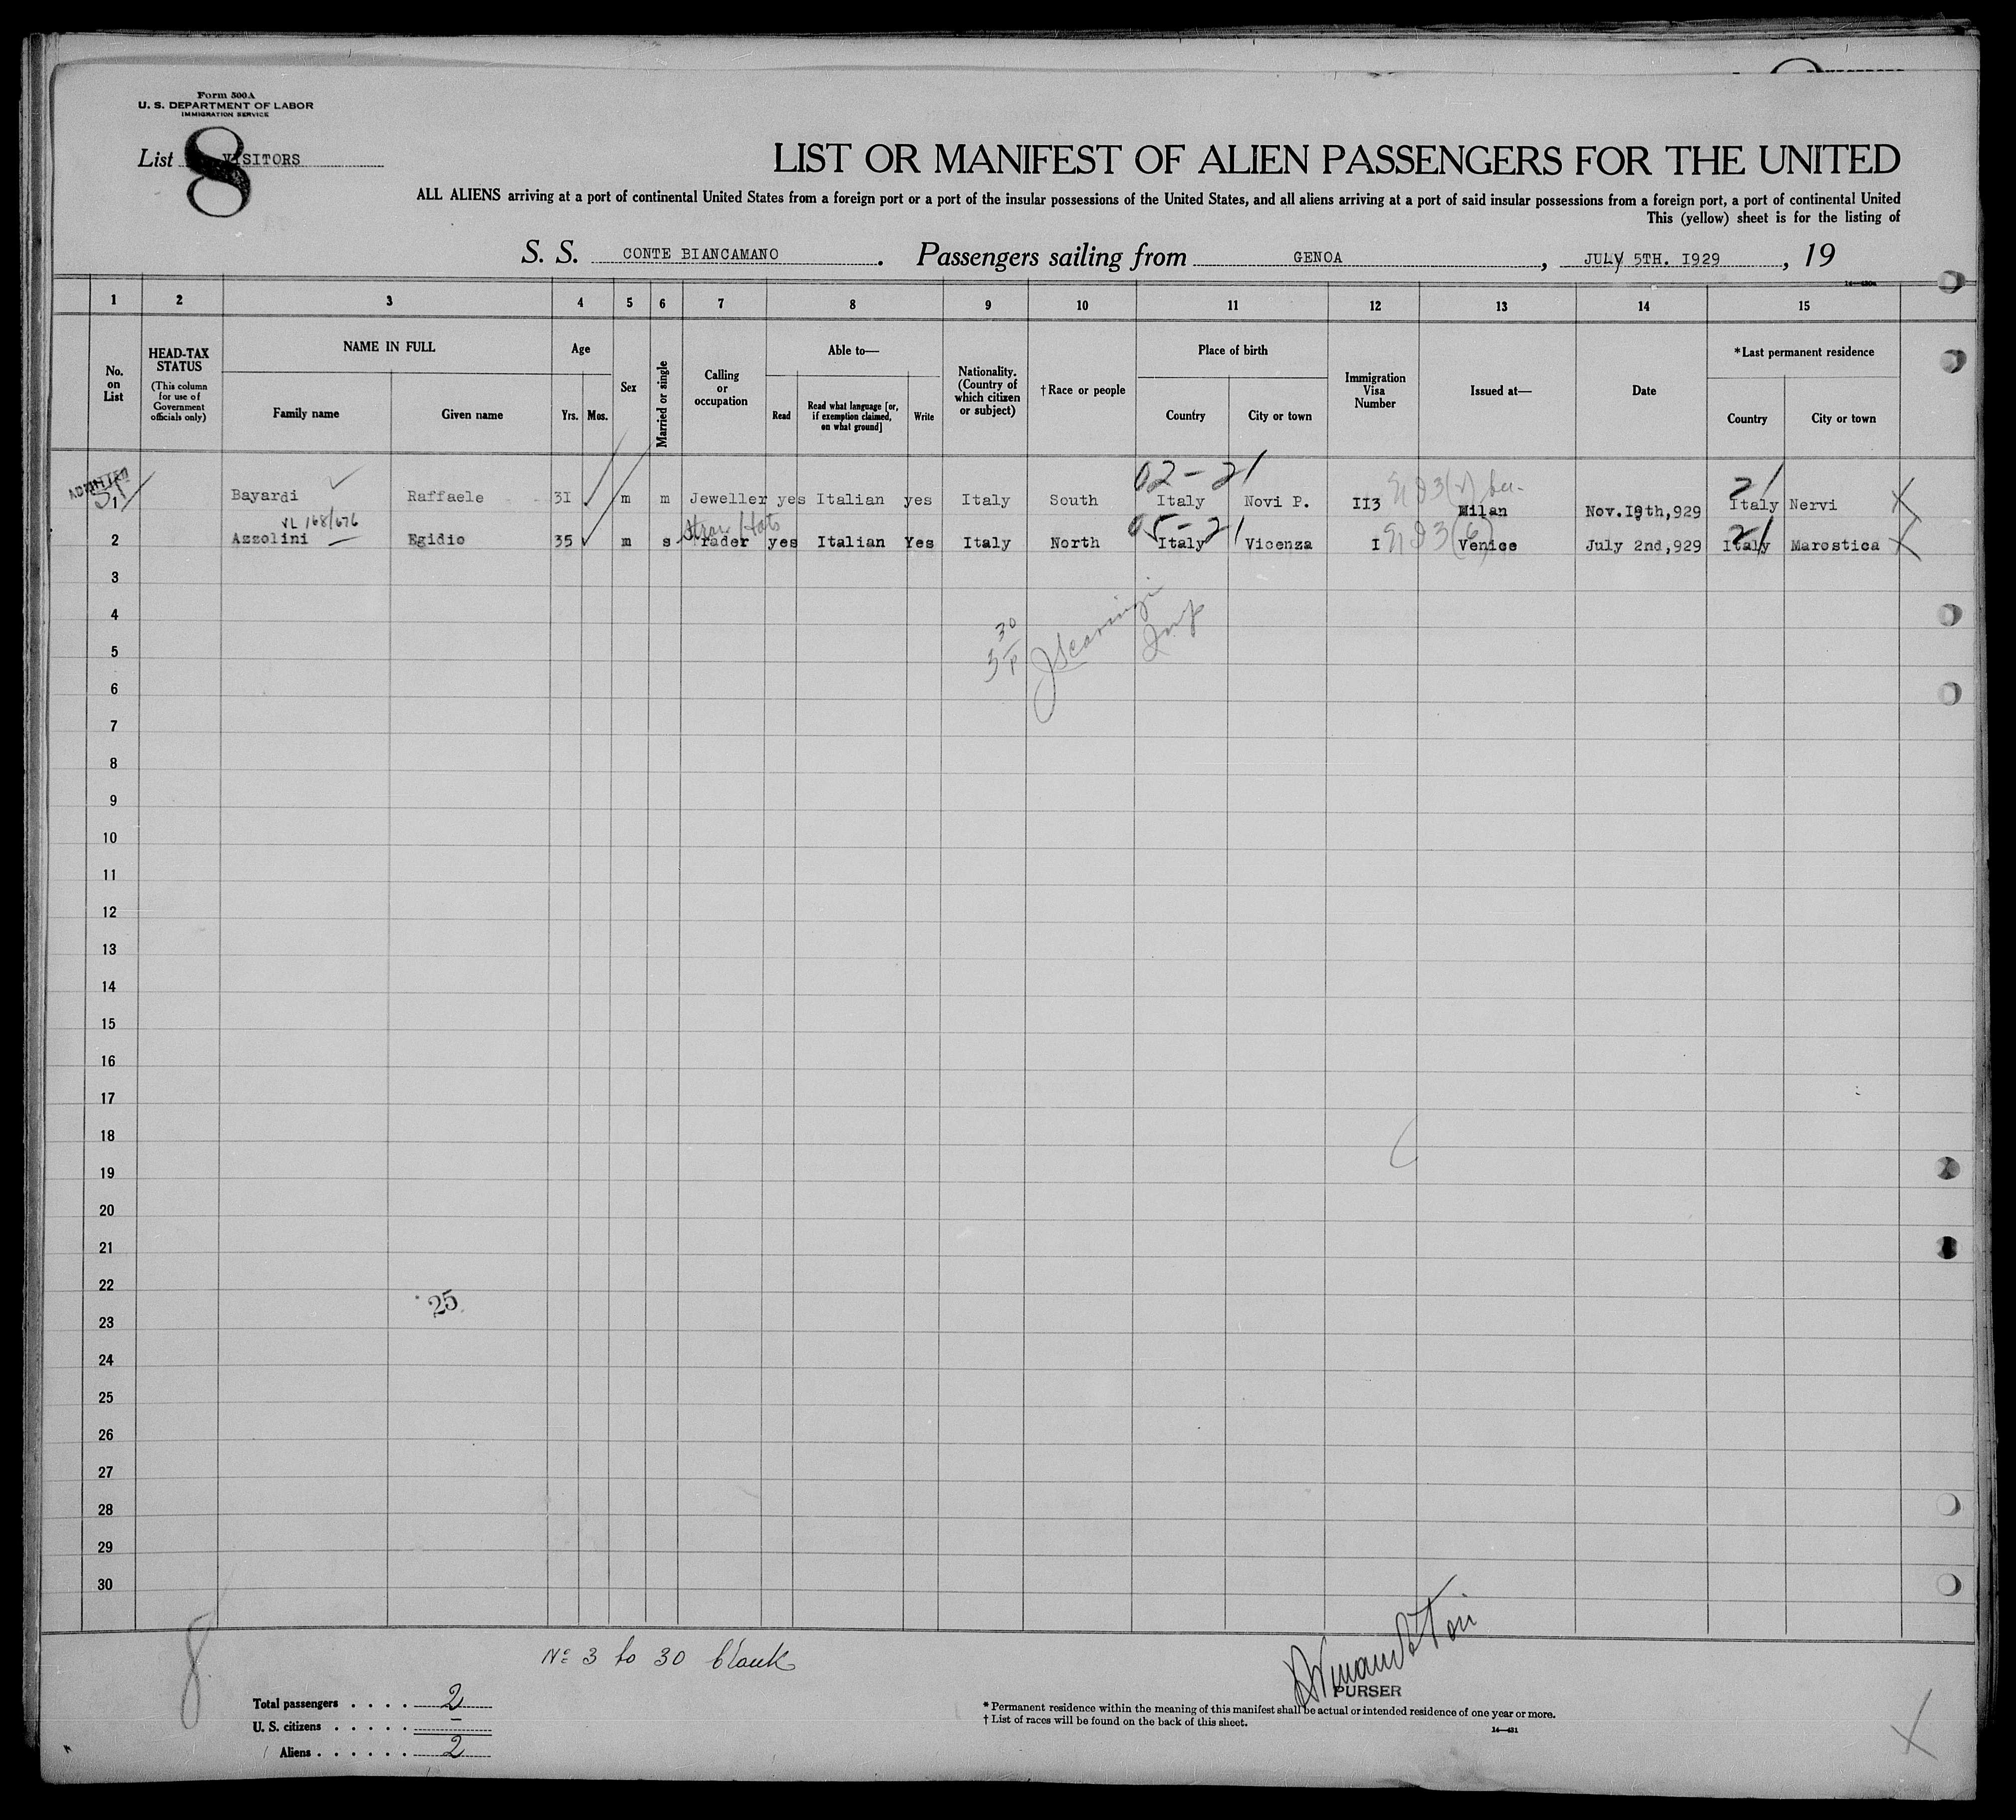 Form 500A
U. S. DEPARTMENT OF LABOR
IMMIGRATION SERVICE
List 8 VISITORS
LIST OR MANIFEST OF ALIEN PASSENGERS FOR THE UNITED
ALL ALIENS arriving at a port of continental United States from a foreign port or a port of the insular possessions of the United States, and all aliens arriving at a port of said insular possessions from a foreign port, a port of continental United
This (yellow) sheet is for the listing of
S. S. CONTE BIANCAMANO. Passengers sailing from GENOA, JULY 5TH. I929, 19
1 2 3 4 5 6 7 8 9 10 11 12 13 14 15
No. on List
HEAD-TAX STATUS
(This column for use of Government officials only)
NAME IN FULL
Family name
Given name
Age
Yrs. Mos.
Sex
Married or single
Calling or occupation
Able to—
Read
Read what language [or, if exemption claimed, on what ground]
Write
Nationality. (Country of which citizen or subject)
†Race or people
Place of birth
Country
City or town
Immigration Visa Number
Issued at—
Date
*Last permanent residence
Country
City or town
ADMITTED
02-21 21
1 Bayardi Raffaele 3I m m Jeweller yes Italian yes Italy South Italy Novi P. II3 Milan Nov.I9th,929 Italy Nervi X
VL 168/676 Straw Hats 05-21 21
2 Azzolini Egidio 35 m s Trader yes Italian Yes Italy North Italy Vicenza I Venice July 2nd,929 Italy Marostica X
3
4
5
6
7
8
9
10
11
12
13
14
15
16
17
18
19
20
21
22
25
23
24
25
26
27
28
29
30
8
Nº 3 to 30 blank
PURSER
Total passengers . . . . 2
U. S. citizens . . . . .
Aliens . . . . . . 2
* Permanent residence within the meaning of this manifest shall be actual or intended residence of one year or more.
† List of races will be found on the back of this sheet.
14—431
X